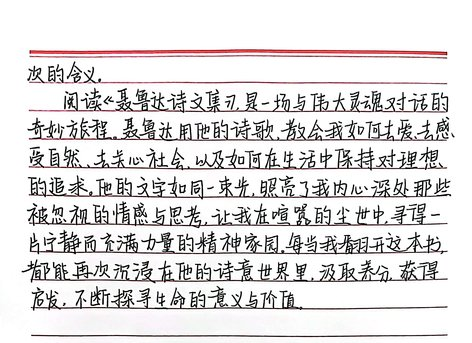 次的含义。
阅读《聂鲁达诗文集》,是一场与伟大灵魂对话的
奇妙旅程。聂鲁达用他的诗歌,教会我如何去爱、去感
受自然、去关心社会,以及如何在生活中保持对理想
的追求。他的文字如同一束光,照亮了我内心深处那些
被忽视的情感与思考,让我在喧嚣的尘世中,寻得一
片宁静而充满力量的精神家园。每当我翻开这本书,
都能再次沉浸在他的诗意世界里,汲取养分,获得
启发,不断探寻生命的意义与价值。